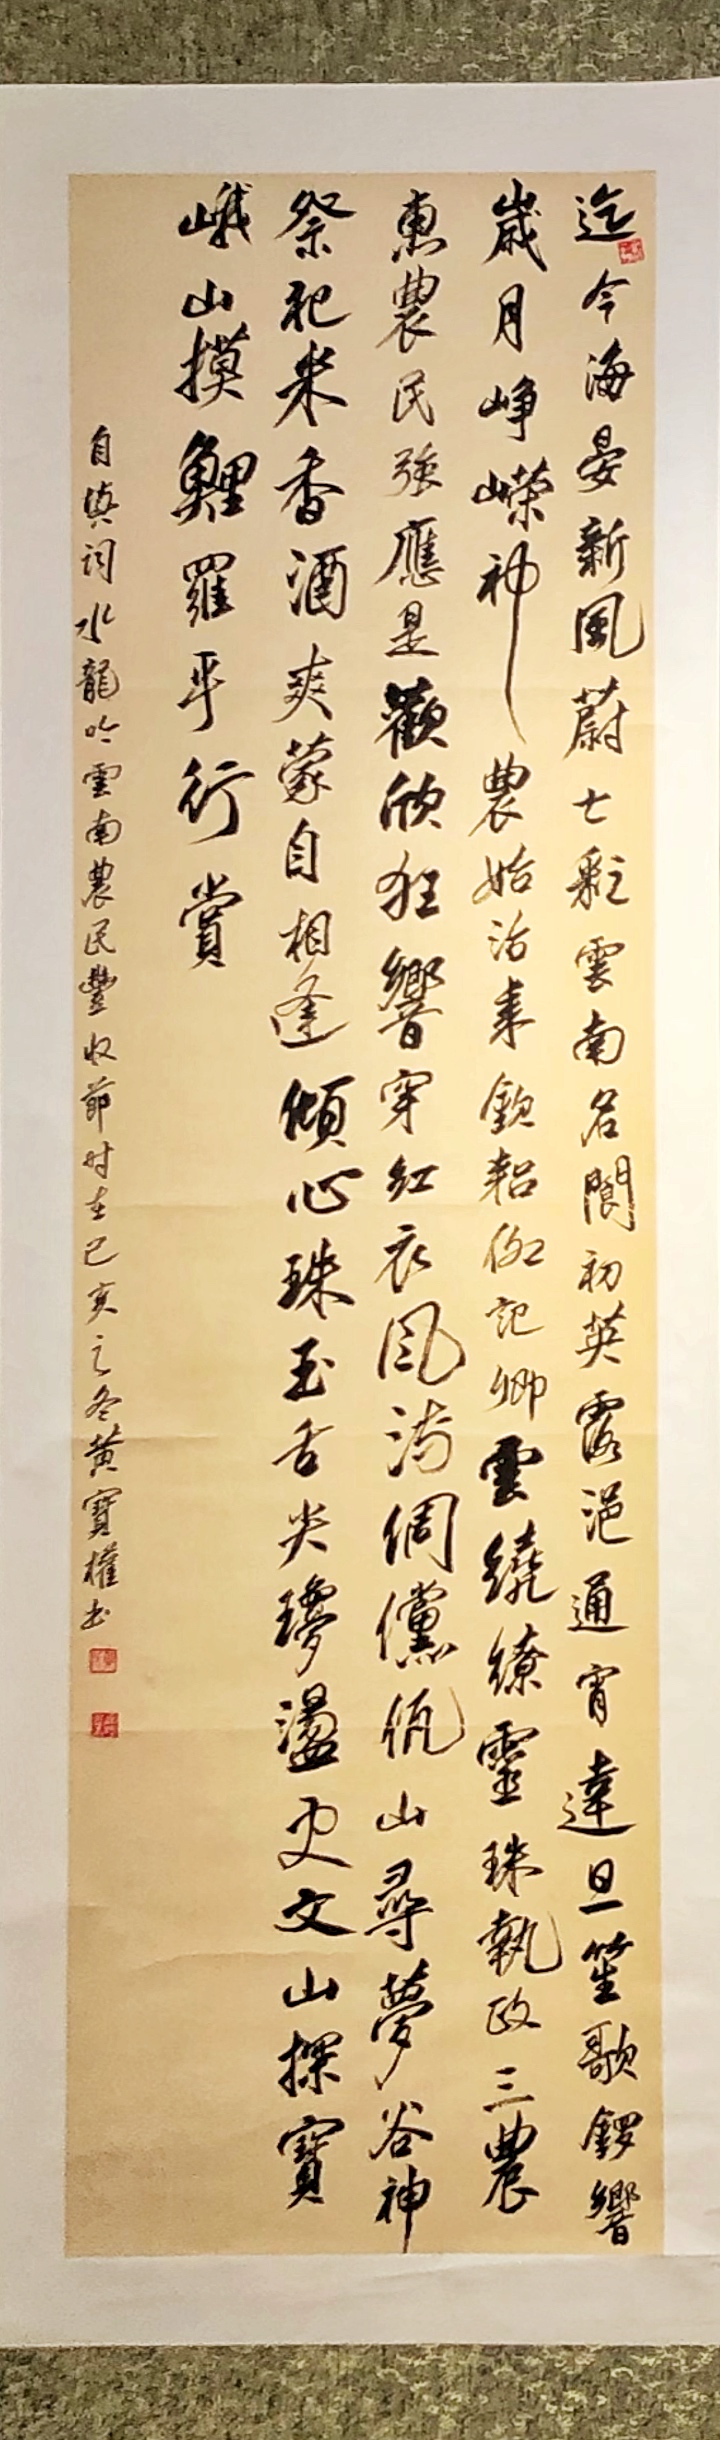 迄今海晏新風蔚七彩雲南名閬初英露浥通宵達旦笙歌鑼響
歲月崢嶸神農始活耒欽耜俶記卿雲繞繚靈珠執政三農
惠農民強應是歡欣狂響穿紅衣風満倜儻佤山尋夢谷神
祭祀米香酒爽蒙自相逢傾心珠玉舌尖璆盪史文山探寶
峨山摸鯉羅平行賞
自填词水龍吟雲南農民豐收節时在己亥之冬黄寶權书